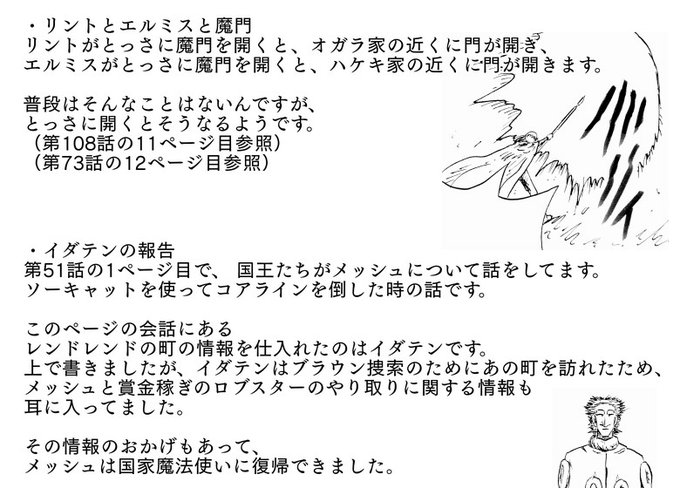 ・リントとエルミスと魔門
リントがとっさに魔門を開くと、オガラ家の近くに門が開き、
エルミスがとっさに魔門を開くと、ハケキ家の近くに門が開きます。
普段はそんなことはないんですが、
とっさに開くとそうなるようです。
（第108話の11ページ目参照）
（第73話の12ページ目参照）
・イダテンの報告
第51話の1ページ目で、 国王たちがメッシュについて話をしてます。
ソーキャットを使ってコアラインを倒した時の話です。
このページの会話にある
レンドレンドの町の情報を仕入れたのはイダテンです。
上で書きましたが、イダテンはブラウン捜索のためにあの町を訪れたため、
メッシュと賞金稼ぎのロブスターのやり取りに関する情報も
耳に入ってました。
その情報のおかげもあって、
メッシュは国家魔法使いに復帰できました。